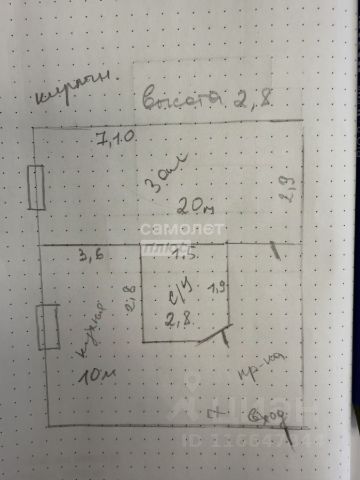 кирпич.
высота 2,8
7,10
Зал
20м
2,9
самолет
плюс
3,6
1.5
2,8
с/у
1,9
2,8
кухня
10м
пр-жа
вход
циан